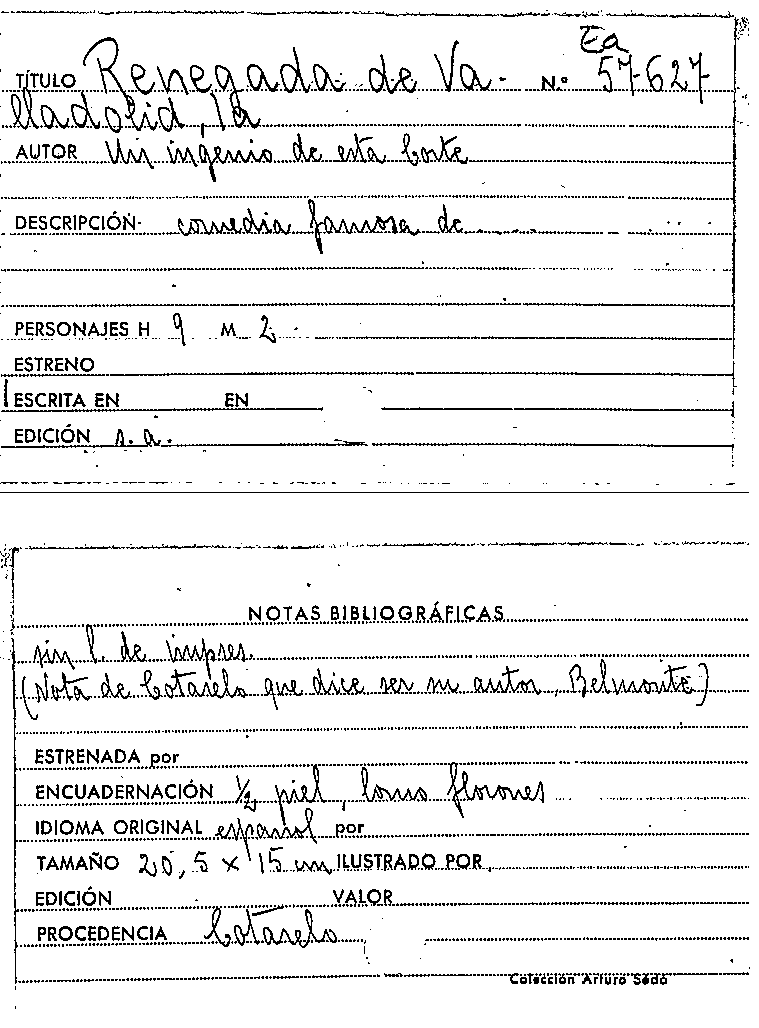 Ea
TÍTULO Renegada de Va- N.° 57627
lladolid, la
AUTOR Un ingenio de esta Corte
DESCRIPCIÓN- comedia famosa de
PERSONAJES H 9 M 2
ESTRENO
ESCRITA EN EN
EDICIÓN s.a.
NOTAS BIBLIOGRÁFICAS
sin l. de impres.
(Nota de Cotarelo que dice ser su autor, Belmonte)
ESTRENADA por
ENCUADERNACIÓN ½ piel, lomo florones
IDIOMA ORIGINAL español por
TAMAÑO 20,5 x 15 cm ILUSTRADO POR
EDICIÓN VALOR
PROCEDENCIA Cotarelo
Colección Arturo Sedó